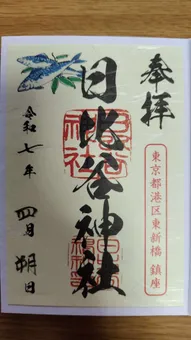 奉拝
東京都港区東新橋 鎮座
日比谷神社
令和七年 四月 朔日